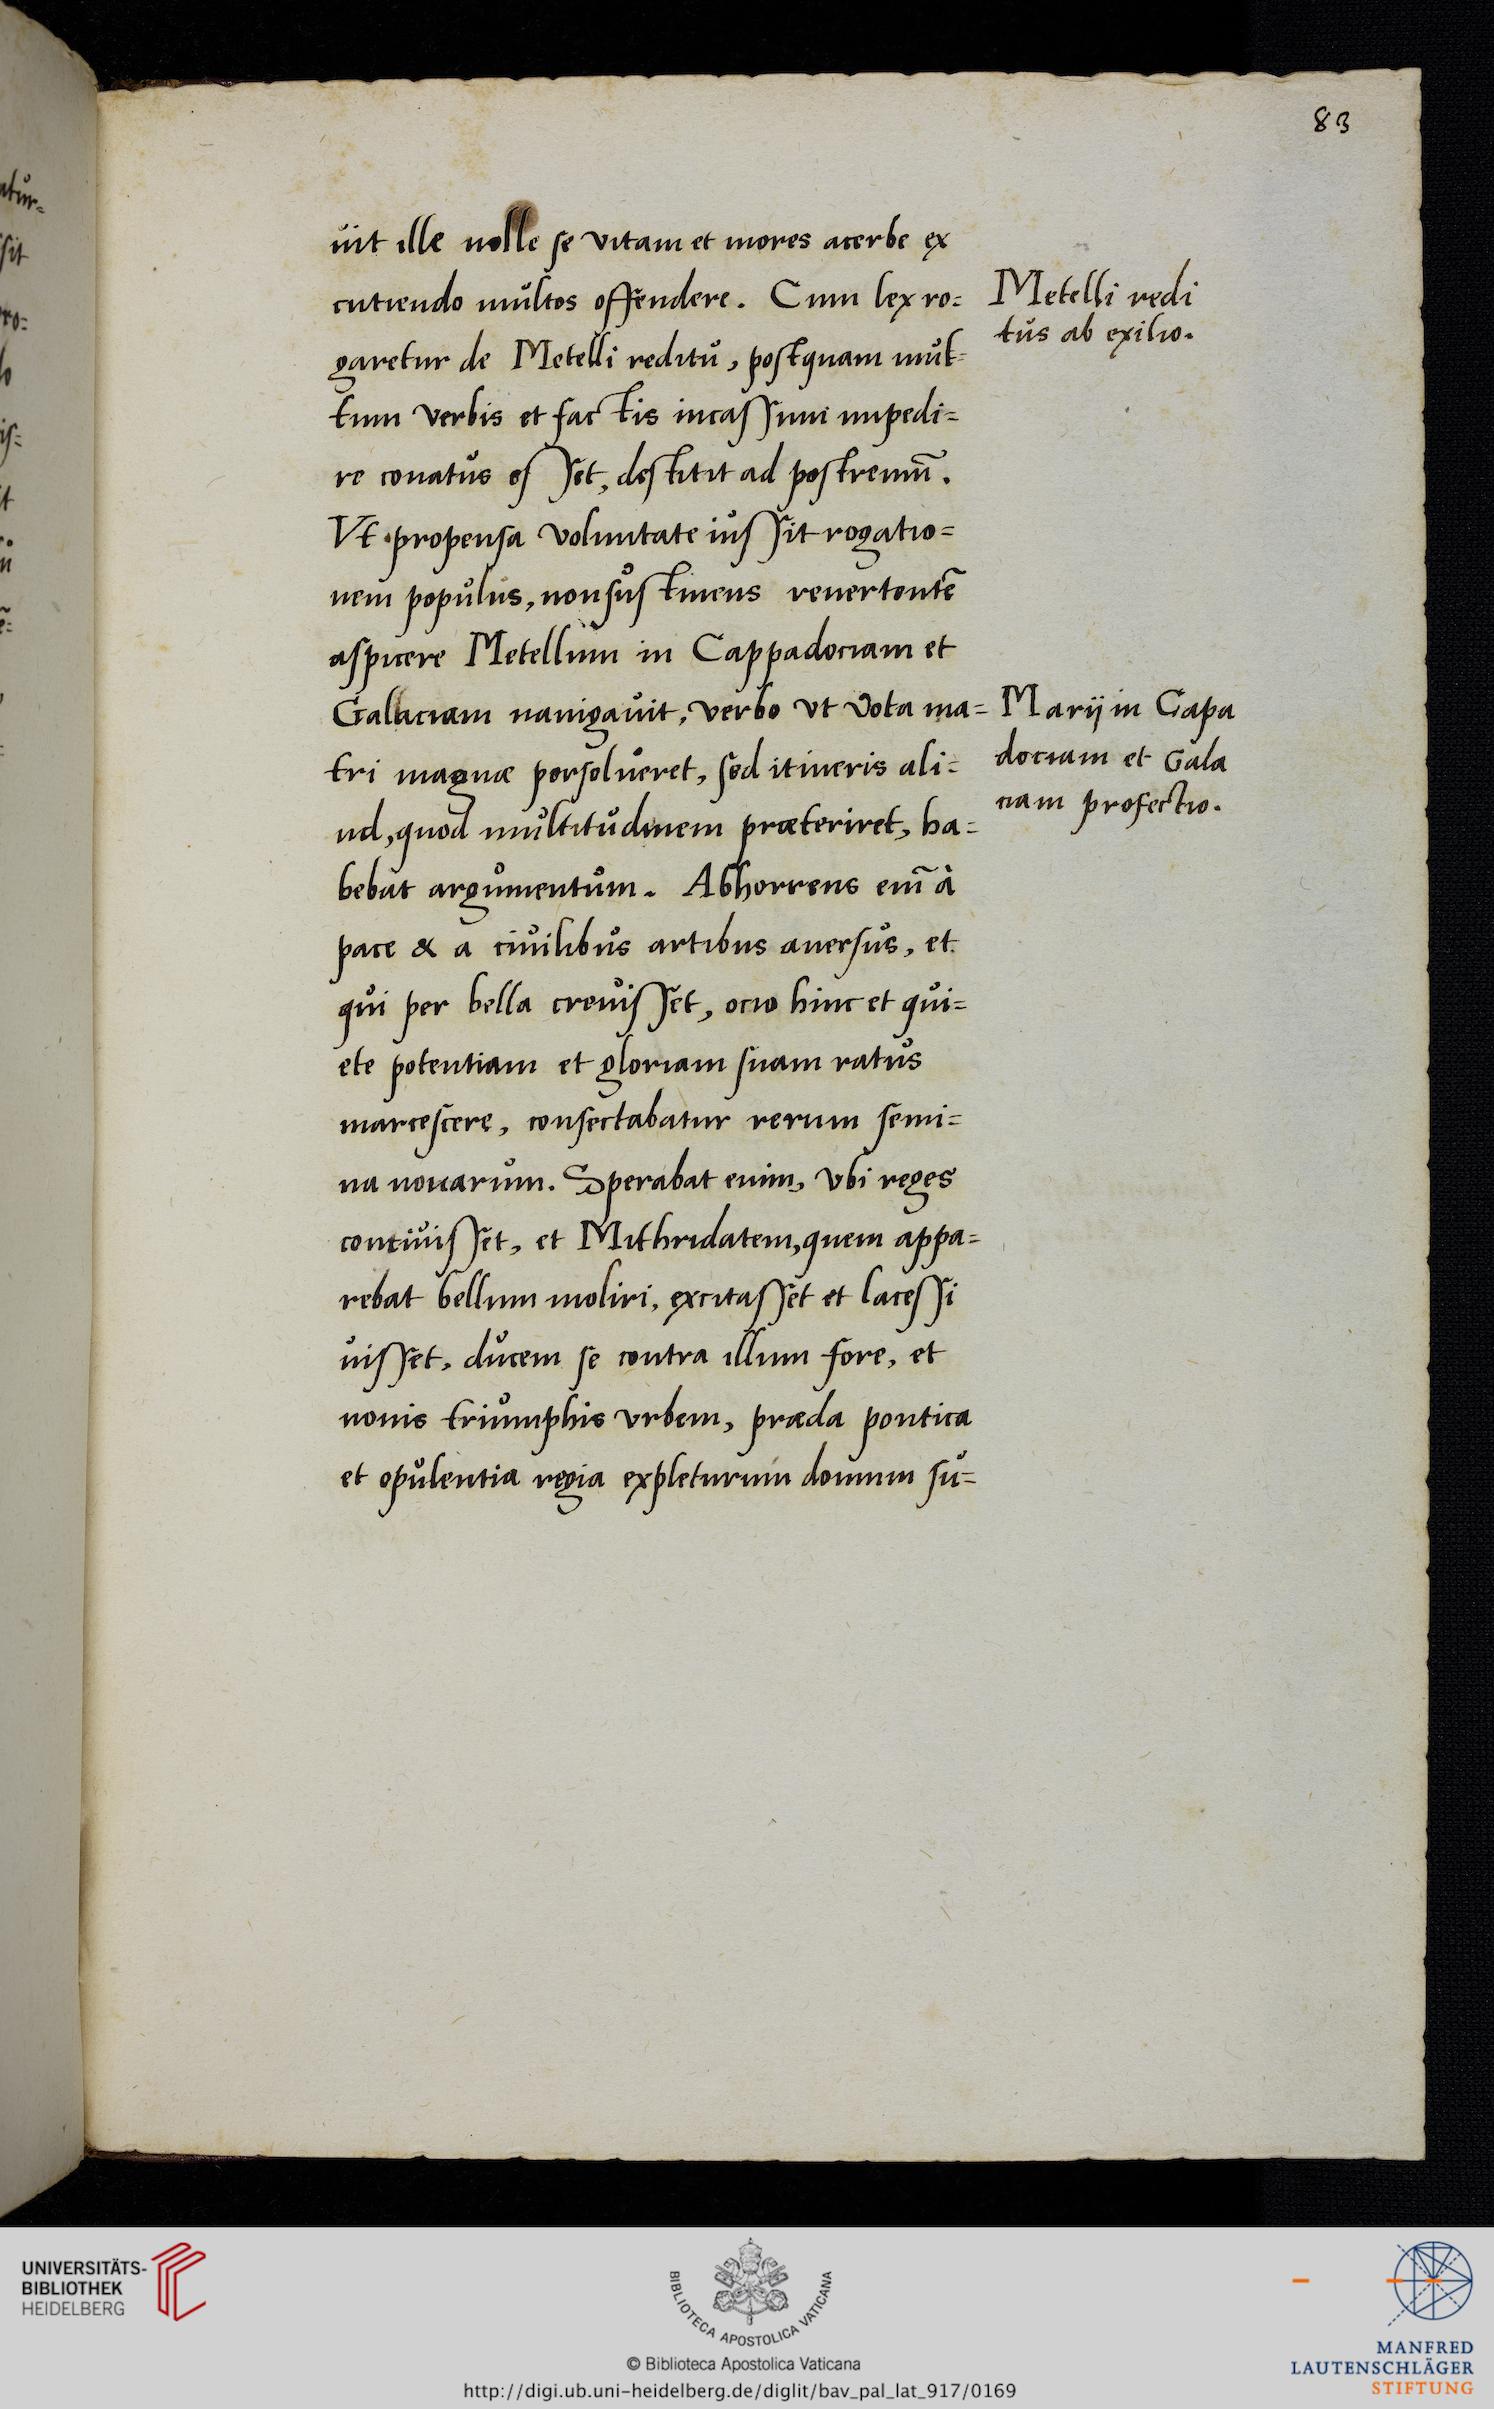 83
uit ille nolle se vitam et mores acerbe ex
cutiendo multos offendere. Cum lex ro=
garetur de Metelli reditu, postquam mul=
tum verbis et factis incassum impedi=
re conatus esset, destitit ad postremũ.
Vt propensa voluntate iussit rogatio=
nem populus, non sustinens revertentẽ
aspicere Metellum in Cappadociam et
Galaciam navigavit, verbo vt vota ma=
tri magnæ persolueret, sed itineris ali=
ud, quod multitudinem præteriret, ha=
bebat argumentum. Abhorrens em̃ à
pace & a civilibus artibus aversus, et
qui per bella crevisset, ocio hinc et qui=
ete potentiam et gloriam suam ratus
marcescere, consectabatur rerum semi=
na novarum. Sperabat enim, vbi reges
concivisset, et Mithridatem, quem appa=
rebat bellum moliri, excitasset et lacessi
uisset, ducem se contra illum fore, et
novis triumphis vrbem, præda pontica
et opulentia regia expleturum domum su=
Metelli redi
tus ab exilio.
Marij in Capa
dociam et Gala
ciam profectio.
UNIVERSITÄTS-
BIBLIOTHEK
HEIDELBERG
BIBLIOTECA APOSTOLICA VATICANA
© Biblioteca Apostolica Vaticana
http://digi.ub.uni-heidelberg.de/diglit/bav_pal_lat_917/0169
MANFRED
LAUTENSCHLÄGER
STIFTUNG